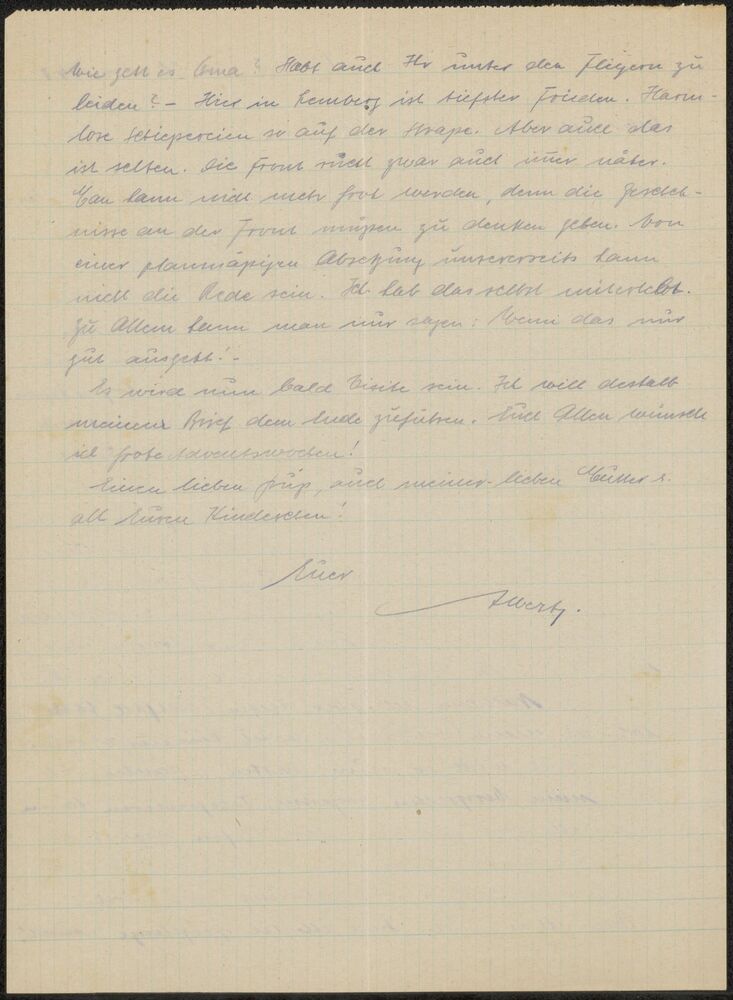 Wie geht es Oma? Habt auch Ihr unter den Fliegern zu
leiden? – Hier in Lemberg ist tiefster Frieden. Harm-
lose Schiepereien so auf der Strape. Aber auch das
ist selten. Die Front rückt zwar auch imer näher.
Man kann nicht mehr froh werden, denn die Gescheh-
nisse an der Front müpen zu denken geben. Von
einer planmäpigen Absetzung unsererseits kann
nicht die Rede sein. Ich hab das selbst miterlebt.
Zu Allem kann man nur sagen: Wenn das nur
gut ausgeht! –
Es wird nun bald Visite sein. Ich will deshalb
meinen Brief dem Ende zuführen. Euch Allen wünsche
ich frohe Adventswochen!
Einen lieben Grup, auch meiner lieben Mutter u.
all Euren Kinderchen!
Euer
Albert.